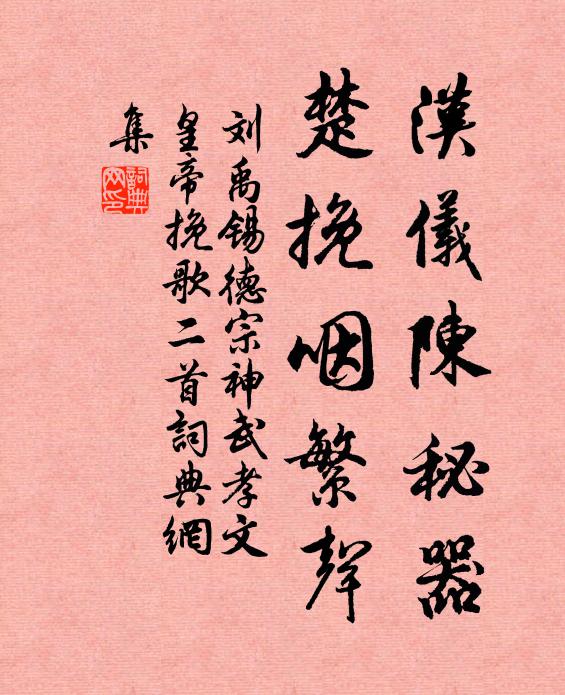 漢儀陳秘器
楚挽咽繁聲
刘禹锡德宗神武孝文
皇帝挽歌二首詞典網
集
詞典
网印